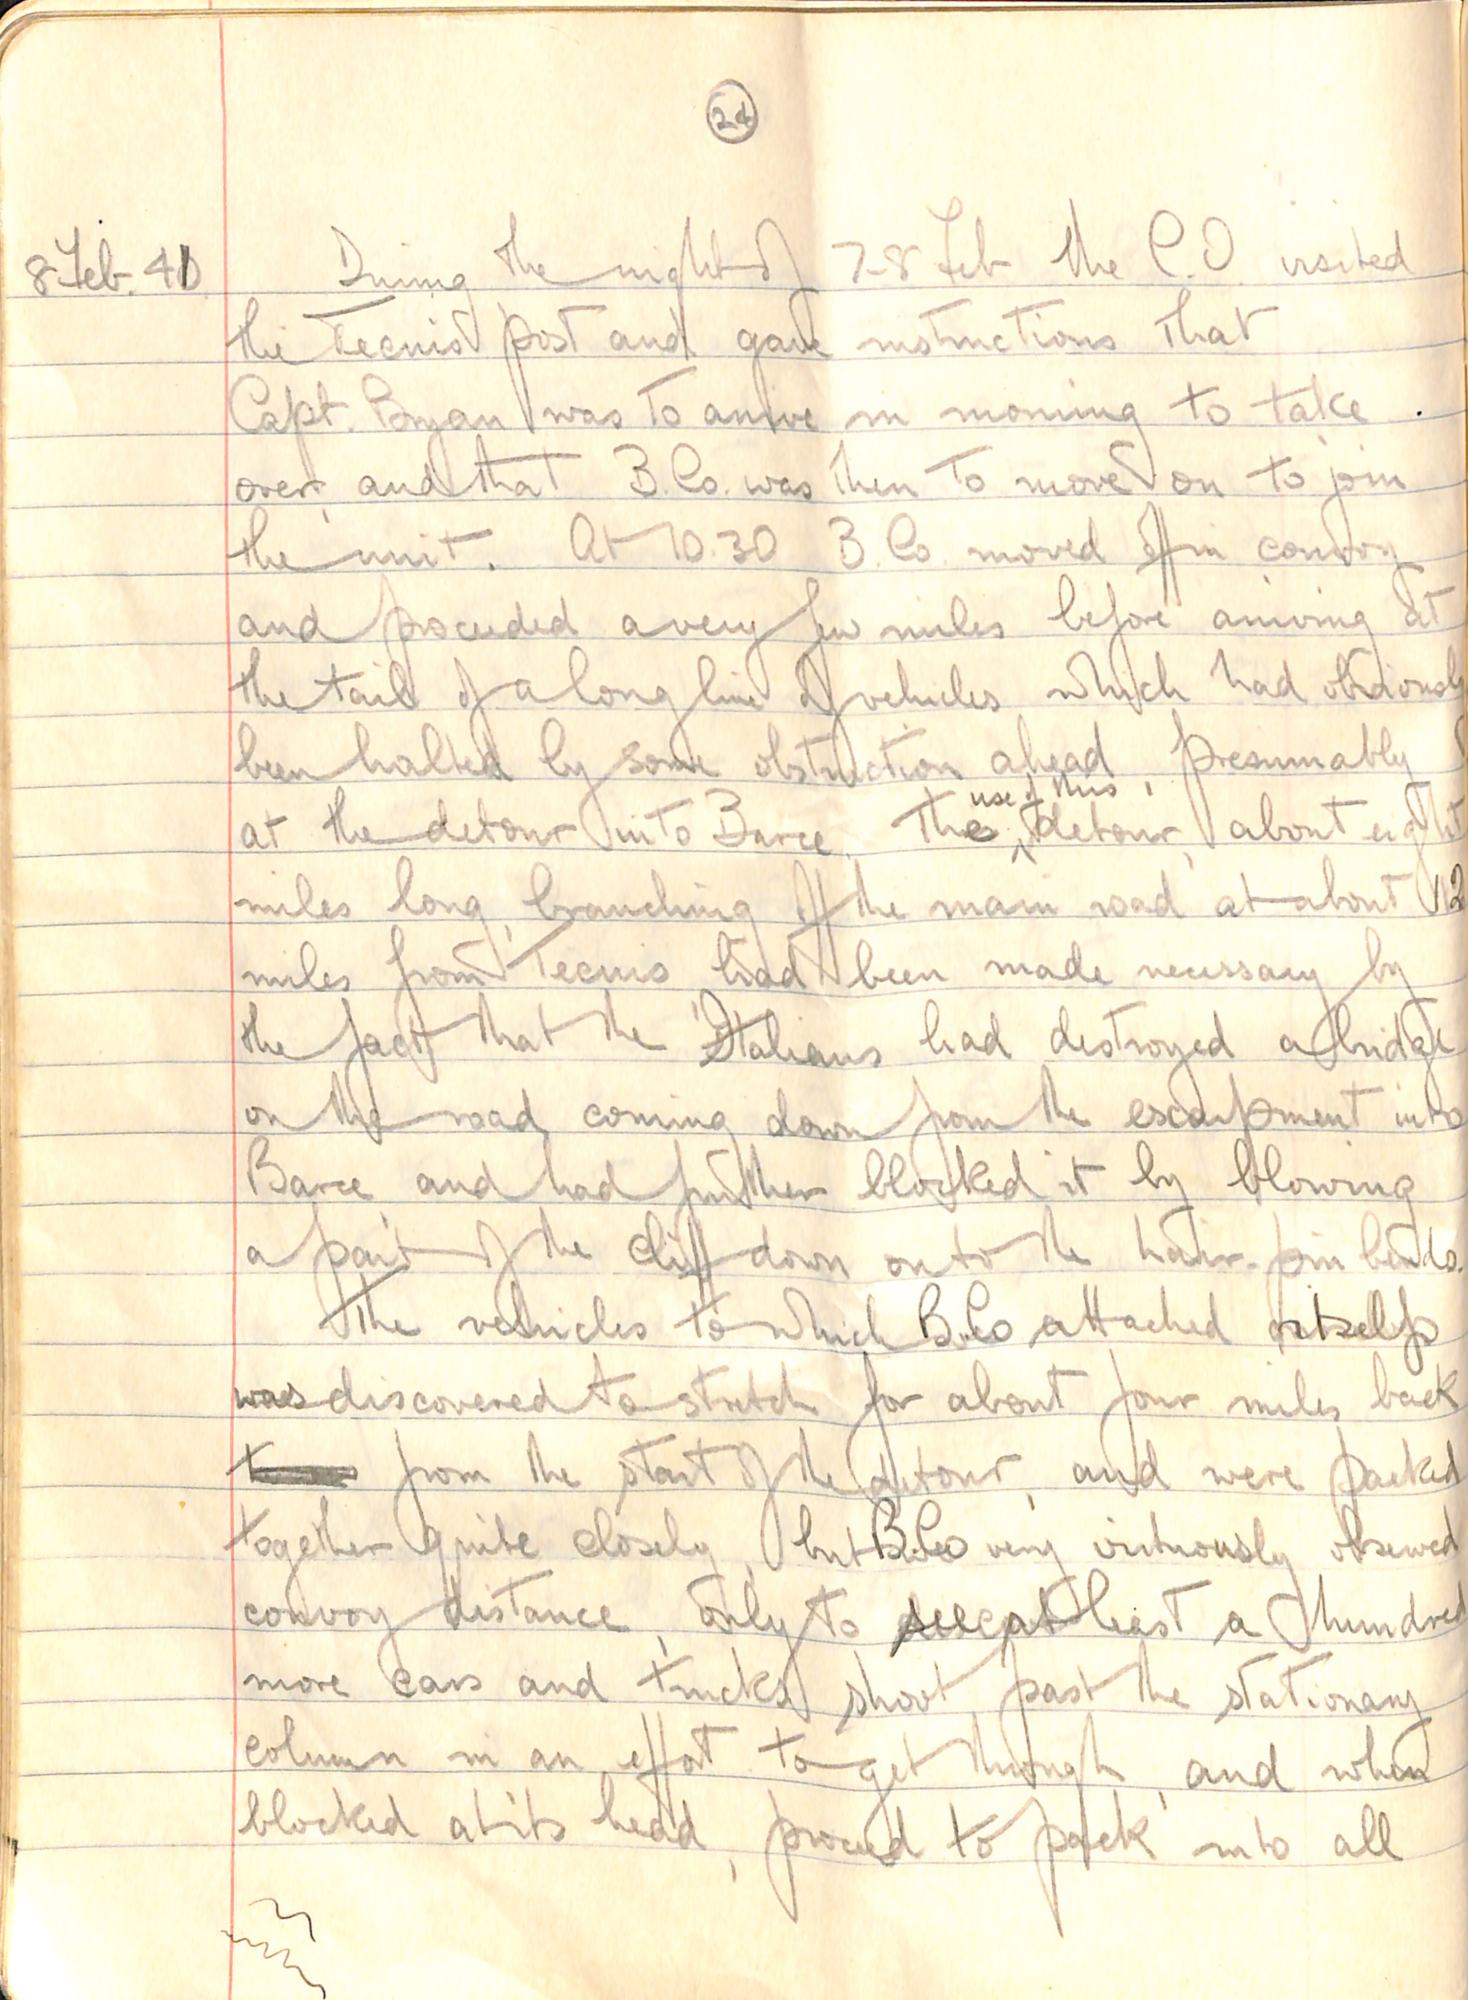 24
8 Feb. 41 During the night of 7-8 Feb the C.O. visited
the Tecnis post and gave instructions that
Capt. Bryan was to arrive in morning to take
over, and that B.Co. was then to move on to join
the unit. At 10.30 B.Co. moved off in convoy
and proceeded a very few miles before arriving at
the tail of a long line of vehicles which had obviously
been halted by some obstruction ahead, presumably
at the detour into Barce. The use of this detour, about eight
miles long, branching off the main road at about 12
miles from Tecnis had been made necessary by
the fact that the Italians had destroyed a bridge
on the road coming down from the escarpment into
Barce, and had further blocked it by blowing
a part of the cliff down onto the hair-pin bends.
The vehicles to which B.Co attached itself
was discovered to stretch for about four miles back
from the start of the detour, and were packed
together quite closely, but B.Co very virtuously observed
convoy distance, only to see at least a hundred
more cars and trucks shoot past the stationary
column in an effort to get through, and when
blocked at its head, proceed to pack into all